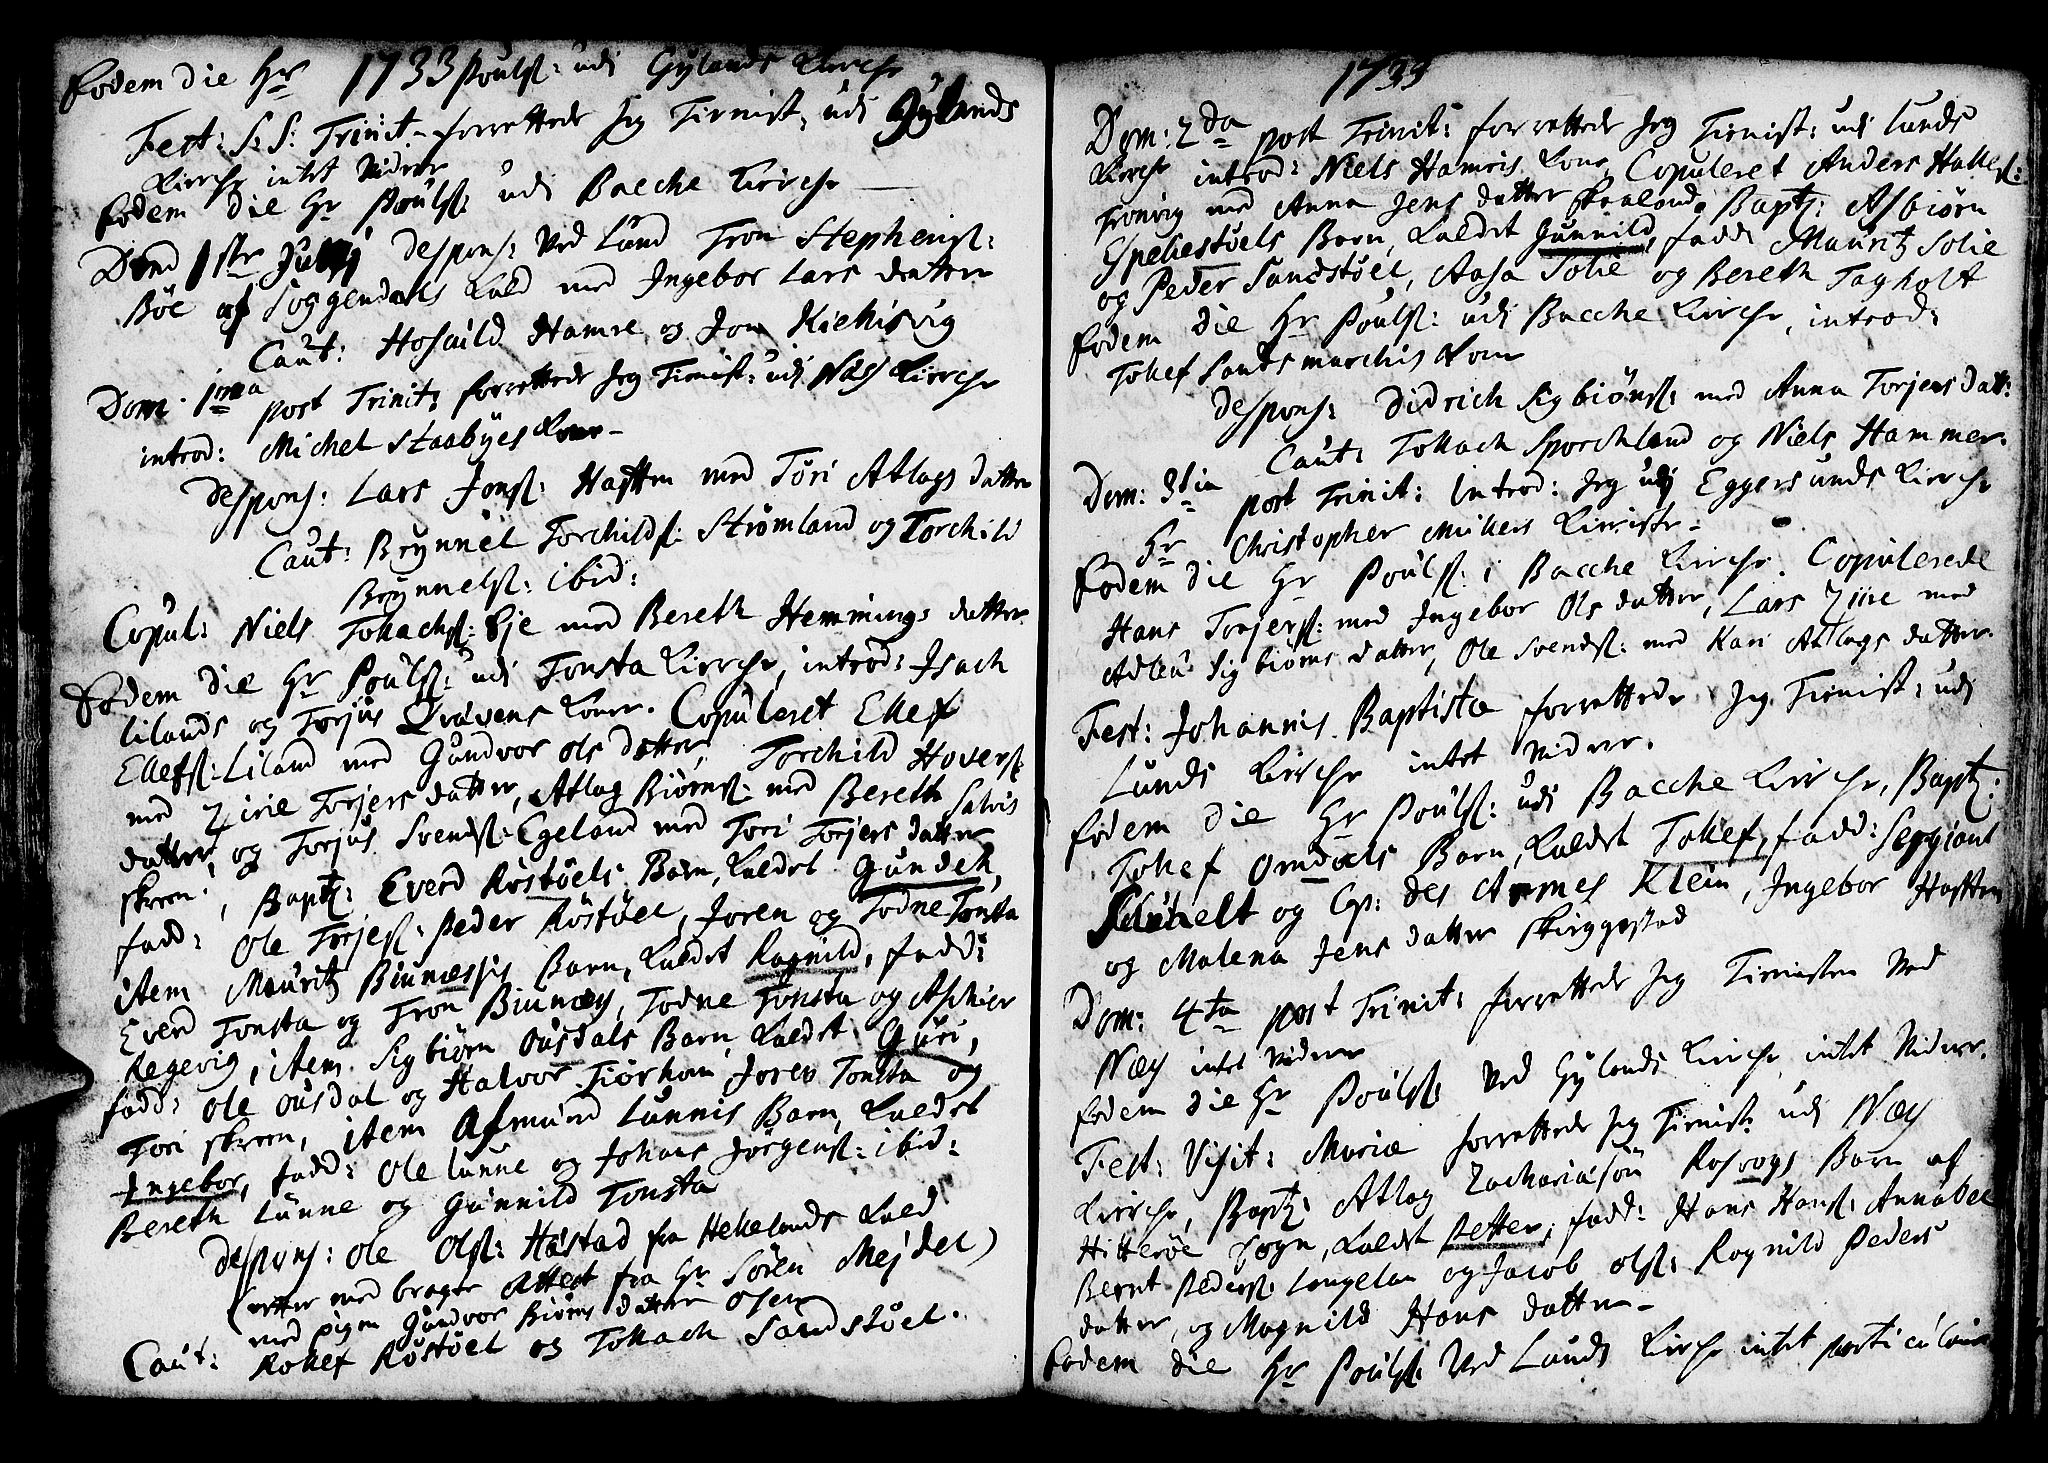 Eodem die Hr 1733 Poulß: udi Gylands Kirche
Fest: S: S: Trinit. forrettede Jeg Tienist: udi Gylands
Kirche intet videre
Eodem die Hr Poulß: udi Bacche Kirche
Dend 1ste Julij Despons: ved Lund Tron Stephensß:
Böe af Soggendals Kald med Ingebor Lars datter
Caut: Hosuild Hamre og Jon Kiehisvig
Dom. 1ma post Trinit: forrettede Jeg Tienist: udi Næs Kirche
introd: Michel Staabÿes Kone
Despons: Lars Jonß: Haften med Töri Atlags datter
Caut: Brynnel Torchildß: Strömland og Torchild
Brynnelß: ibid:
Copul: Niels Tollachß: Eje med Bereth Hemmings datter
Eodem die Hr Poulß: udi Tonsta Kirche, introd: Isach
Lilands og Torjus Kone. Copuleret Ellef
Ellefß: Liland med Gundvor Ols datter, Torchild Hoverß:
med Ziri Torjers datter, Atlag Biörnß: med Bereth Salvis
datter, og Torjus Svendß: Egeland med Tori Torjers datter
Skreen, Bapt: Everd Röstöels Barn, Kaldet Gundell,
fadd: Ole Torjeß: Peder Röstöel, Joren og Todne Tonsta
item Mauritz Biunæssis Barn, Kaldet Ragnild, fadd:
Everd Tonsta og Tron Biunæs, Todne Tonsta og Aschier
Regevig, item Sigbiörn Ousdals Barn, Kaldet Guri,
fadd: Ole Ousdal og Halvor Tiörhom, Joren Tonsta og
Tori Skreen, item Asmund Lunnis Barn, Kaldet
Ingebor, fadd: Ole Lunne og Johans Jörgensß: ibid:
Bereth Lunne og Gunnild Tonsta
Despons: Ole Olß: Hastad fra Hekelands Kald
(efter med bragte Attest fra Hr Sören Mejdel)
med pigen Gundvor Biörns datter Osen
Caut: Rollef Röstöel og Tollach Sandstöel.
1733
Dom: 2da post Trinit: forrettede Jeg Tienist: udi Lunds
Kirche introd: Niels Hamris Kone, Copuleret Anders Halleß:
Tronvig med Anna Jens datter Skaaland, Bapt: Asbiörn
Espelestöels Barn, Kaldet Gunnild, fadd: Mauritz Solie
og Peder Sandstöel, Aasa Solie og Bereth Tagholt
Eodem die Hr Poulß: udi Bacche Kirche, introd:
Tollef Sandsmarchis Kone
Despons: Didrich Sigbiönß: med Anna Torjers datt:
Caut: Tollach Sporchland og Niels Hammer.
Dom: 3tia post Trinit: Introd: Jeg udi Eggersunds Kirche
Hr Christopher Mükers Kieriste
Eodem die Hr Poulß: i Bacche Kirche. Copulerede
Hans Torjerß: med Ingebor Ols datter, Lars Ziri med
Adleu Sigbiörns datter, Ole Svendß: med Kari Atlags datter.
Fest: Johannis Baptistæ forrettede Jeg Tienist: udi
Lunds Kirche intet videre.
Eodem die Hr Poulß: udi Bacche Kirche, Bapt:
Tollef Omdals Barn, Kaldet Tollef, fadd: Sergiant
og Cp: des Armes Klein, Ingebor Haften
og Malena Jens datter Skieggestad
Dom: 4ta post Trinit: forrettede Jeg Tienisten ved
Næs intet videre
Eodem die Hr Poulß: ved Gylands Kirche intet videre.
Fest: Visit: Mariæ forrettede Jeg Tienist: udi Næs
Kirche, Bapt: Atlag Zachariasön Rosvogs Barn af
Hitteröe Sogn, Kaldet Petter, fadd: Hans Hanß: Annabel
Bernt Pederß: Langelan og Jacob Olß: Rognild Peders
datter, og Magnild Hans datter
Eodem die Hr Poulß: ved Lunds Kirche intet particulair